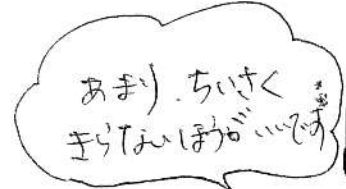 あまり、ちいさく
きらないほうが いいです